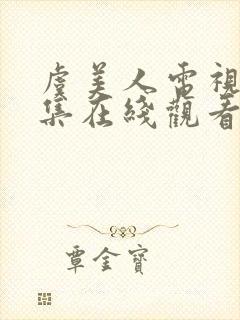 虞美人電視
集在綫觀看
覃金寶